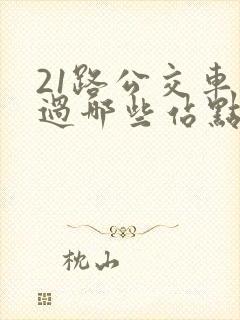 21路公交車
過哪些佔點
枕山